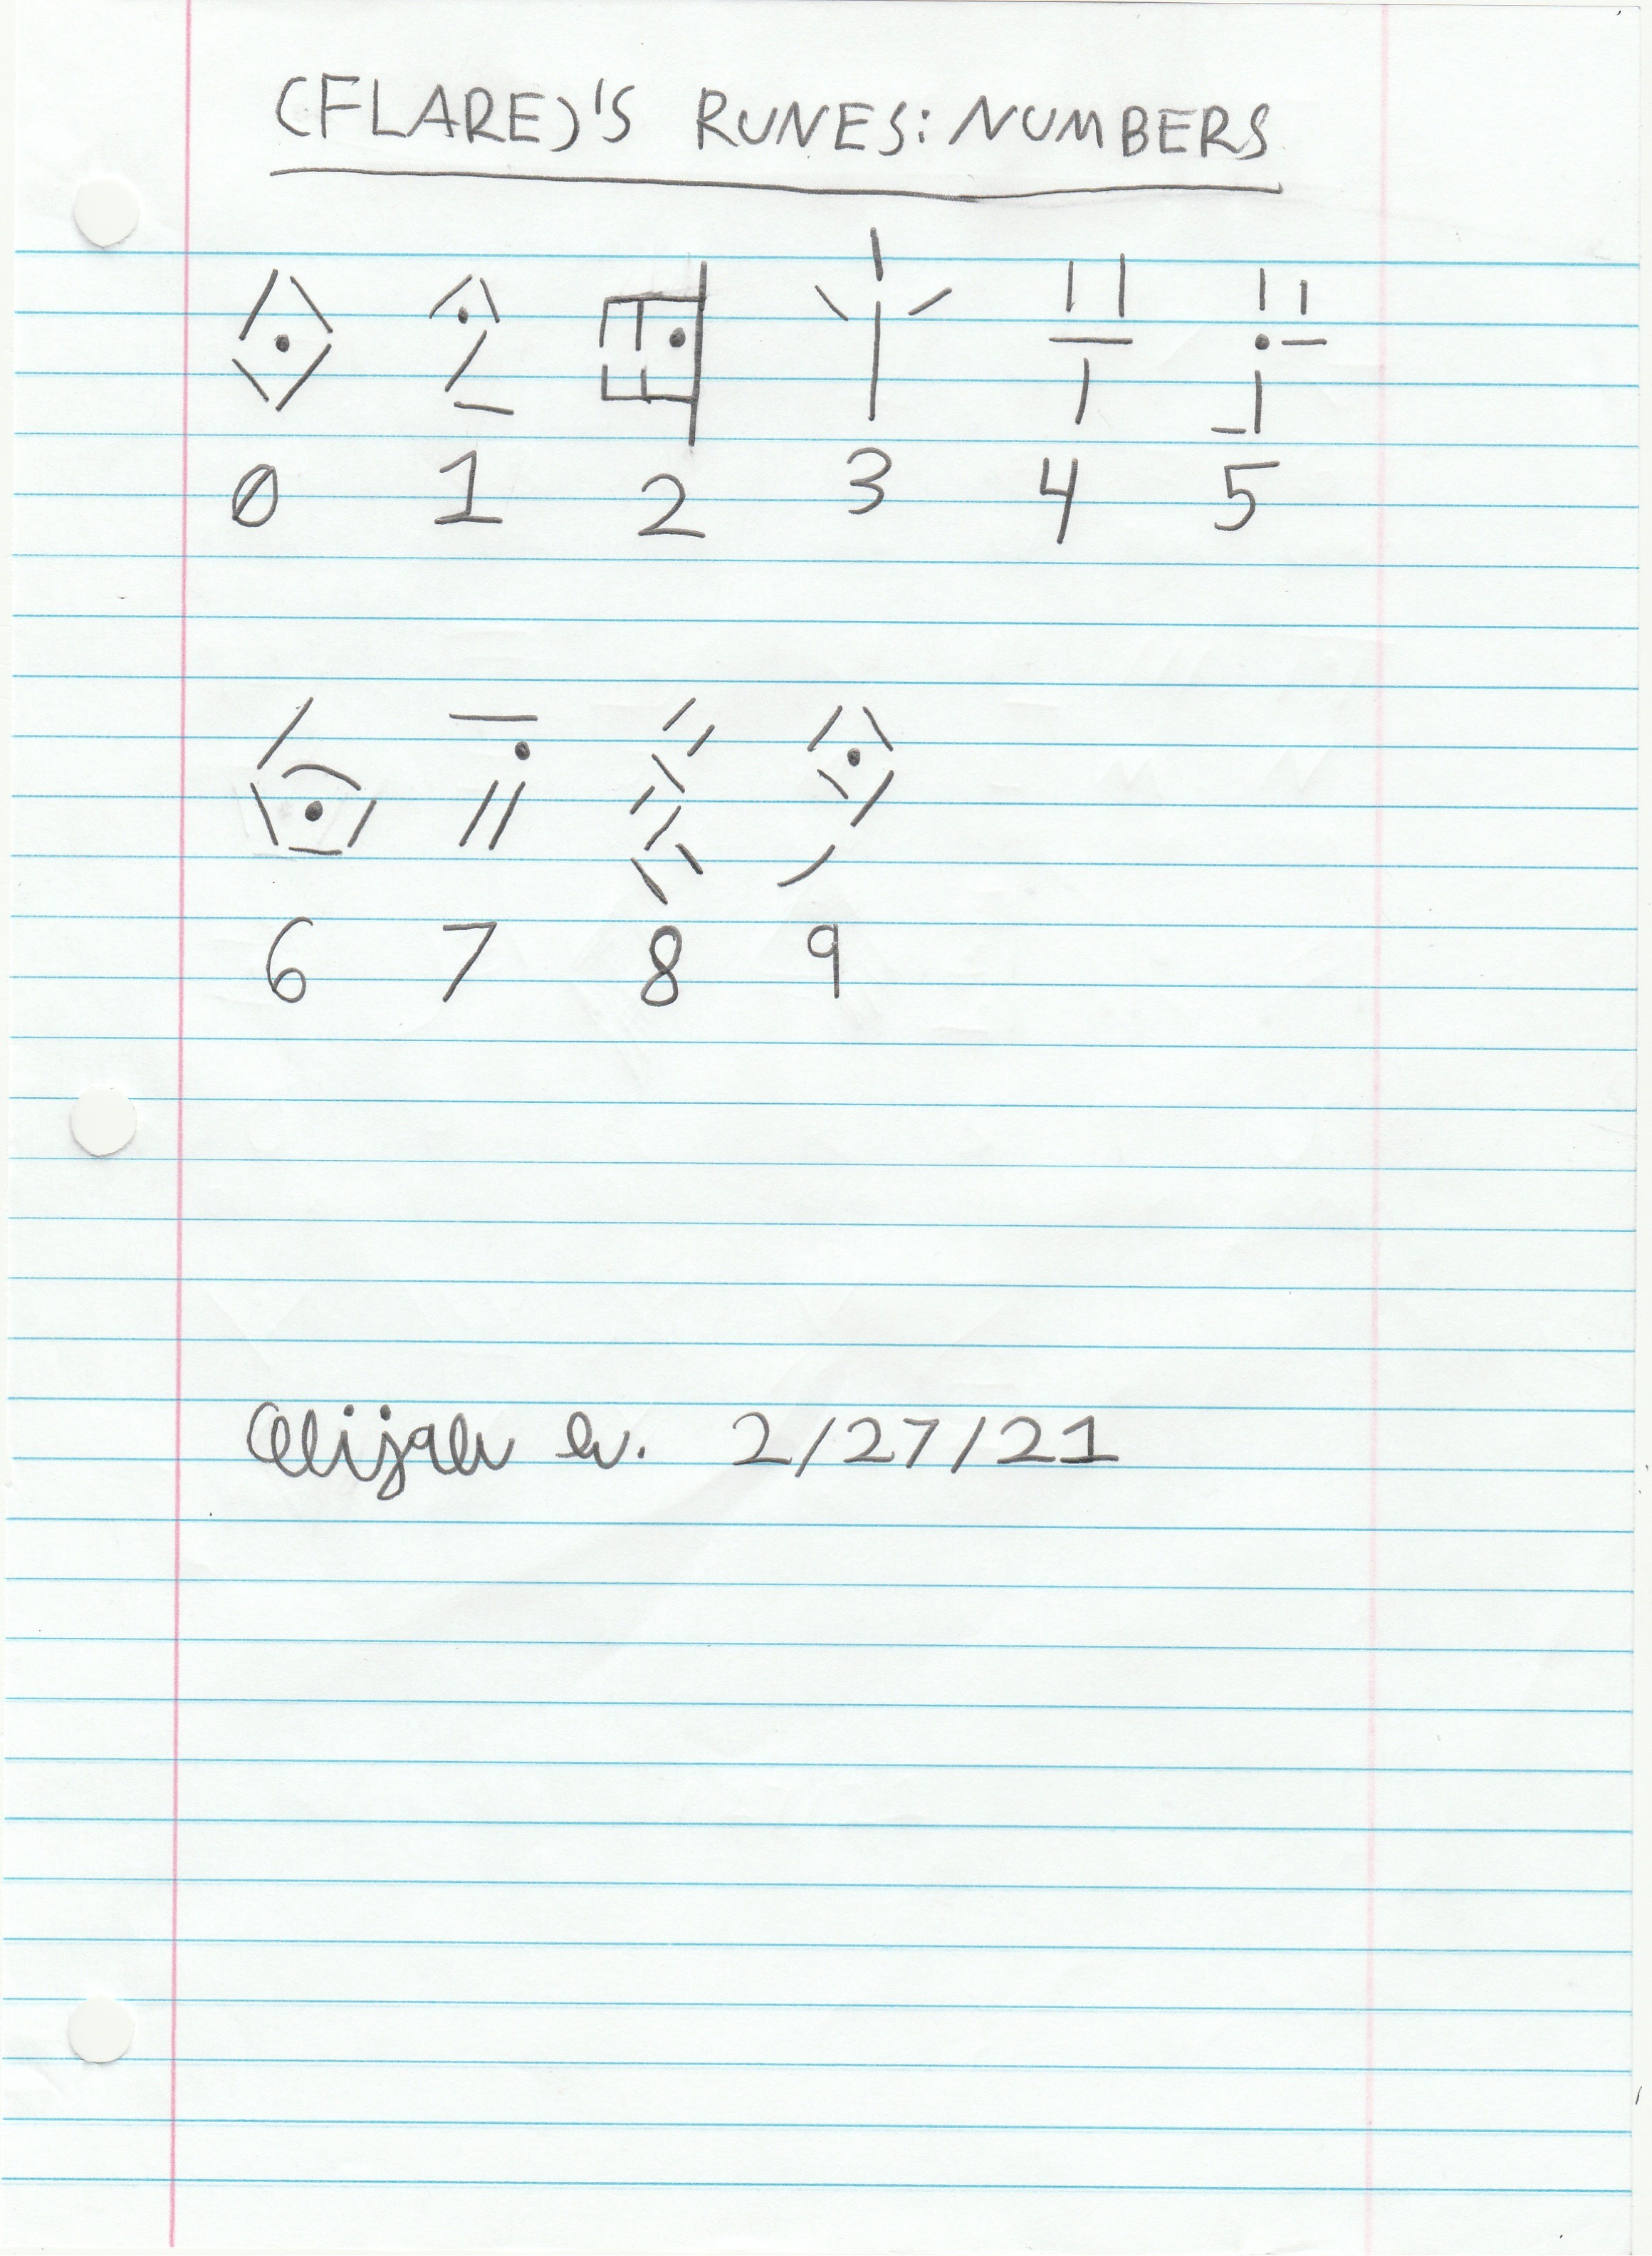 (FLARE)'S RUNES: NUMBERS
0 1 2 3 4 5
6 7 8 9
Elijah 2/27/21